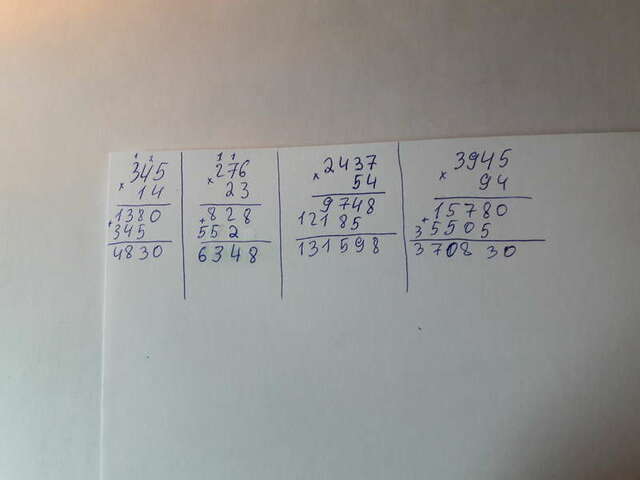 1 2
345
× 14
1380
+345
4830
1 1
276
× 23
828
+552
6348
× 2437
54
9748
12185
131598
3945
× 94
15780
+35505
370830